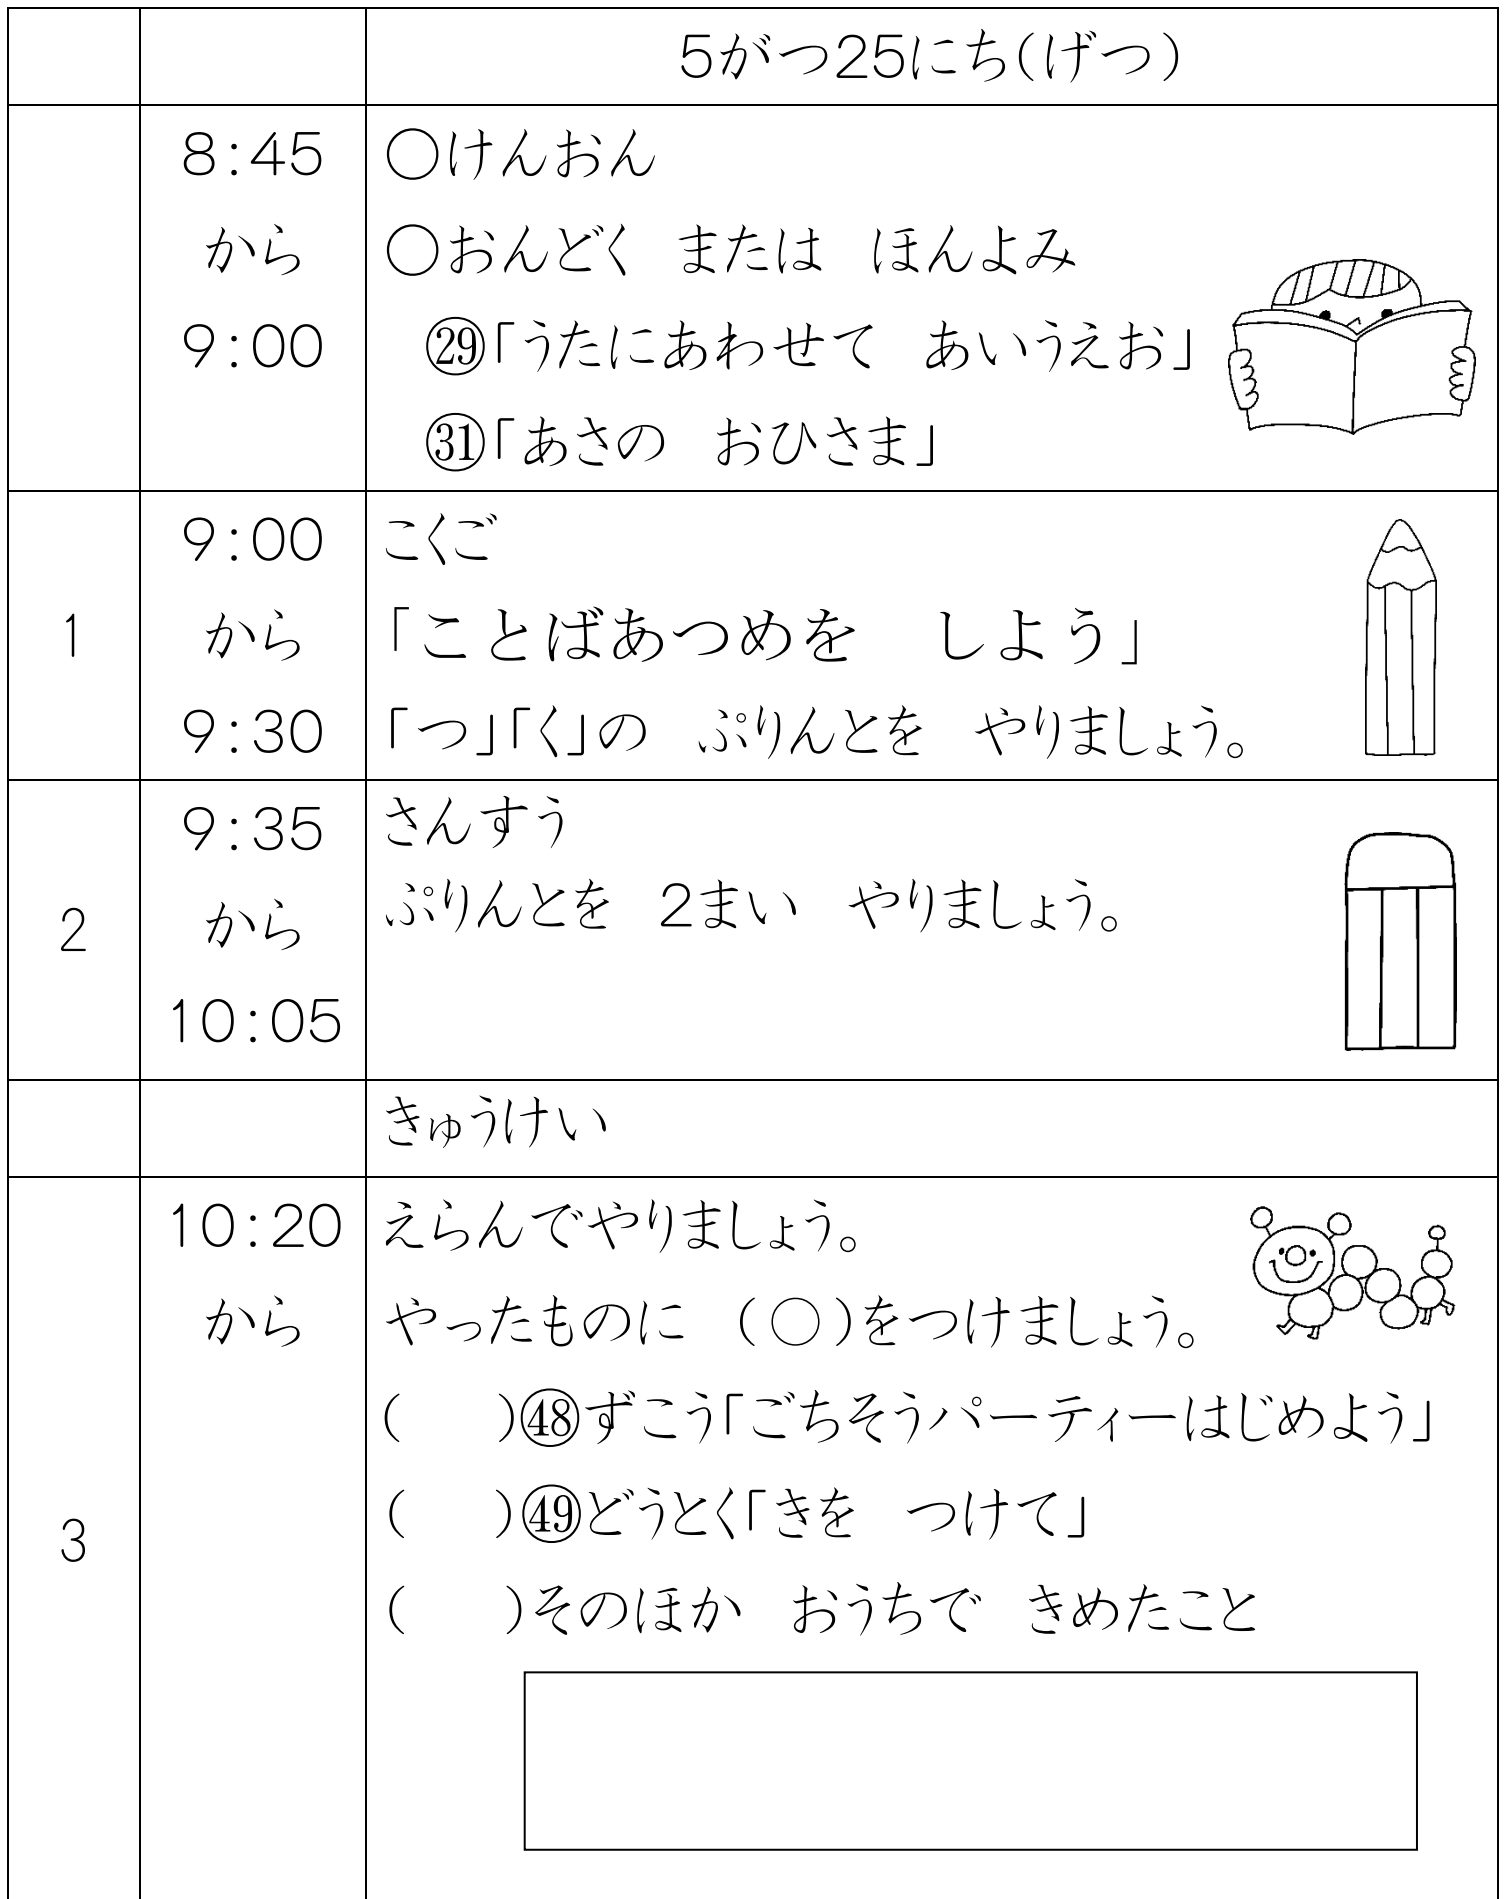 5がつ25にち(げつ)
8:45
から
9:00
○けんおん
○おんどく　または　ほんよみ
㉙「うたにあわせて　あいうえお」
㉛「あさの　おひさま」
1
9:00
から
9:30
こくご
「ことばあつめを　しよう」
「つ」「く」の　ぷりんとを　やりましょう。
2
9:35
から
10:05
さんすう
ぷりんとを　2まい　やりましょう。
きゅうけい
3
10:20
から
えらんでやりましょう。
やったものに　(○)をつけましょう。
(　　)㊽ずこう「ごちそうパーティーはじめよう」
(　　)㊾どうとく「きを　つけて」
(　　)そのほか　おうちで　きめたこと